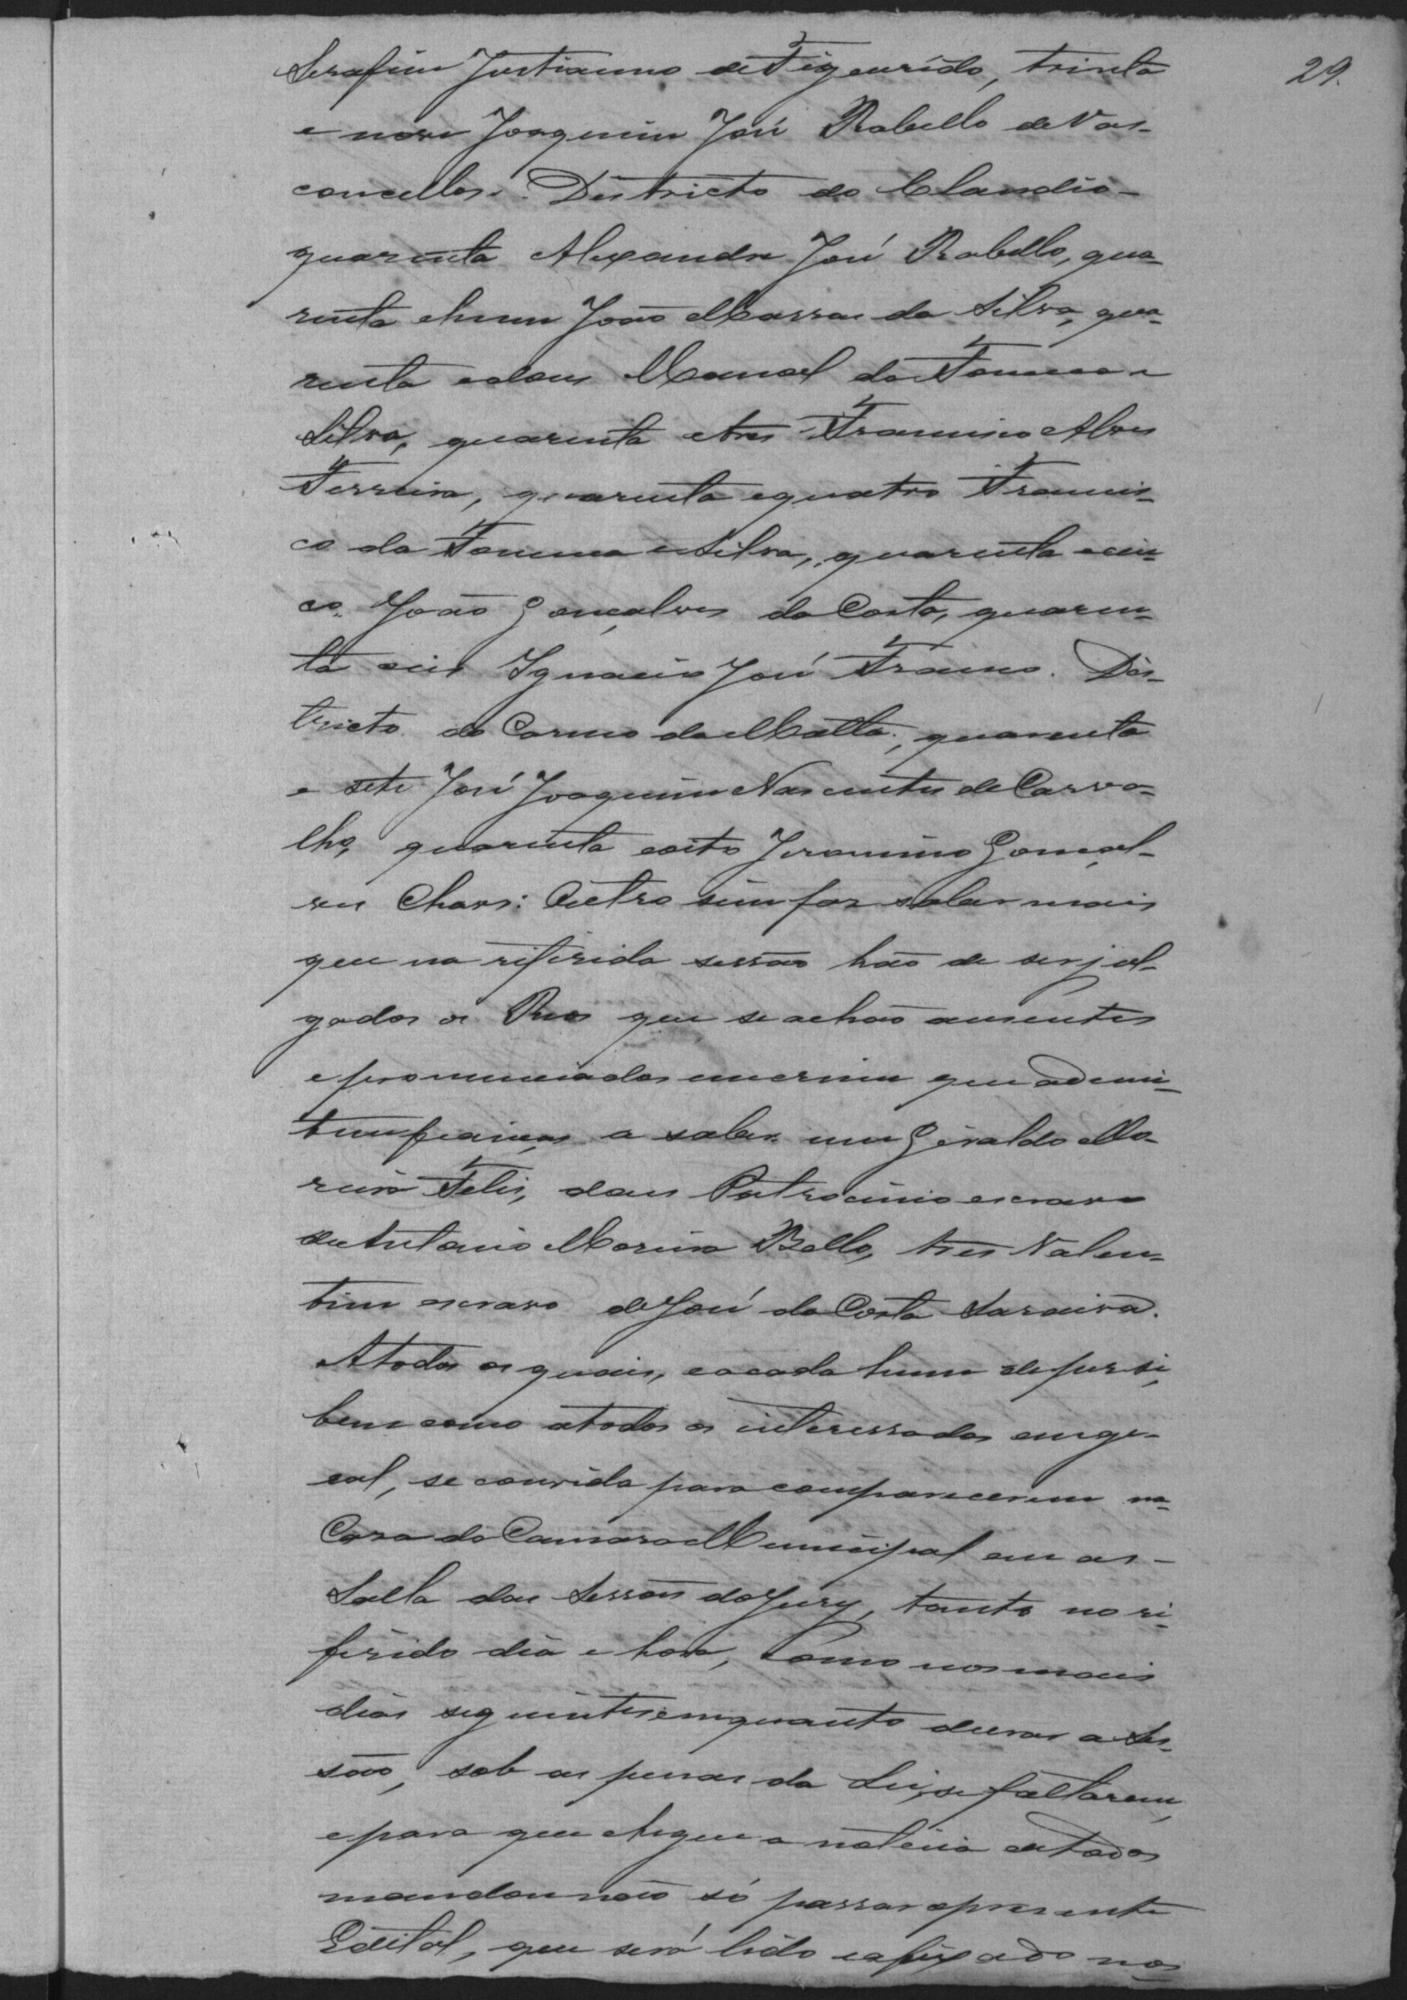 29.
Serafim Justianno de Figueirido, trinta
e nove Joaquim José Rabello de Vas-
concellos. Districto do Claudio -
quarenta Alexandre José Rabello, qua-
renta ehum João Massas da Silva, qua-
renta edous Manoel da Fonseca e
Silva, quarenta etres Francisco Alves
Ferreira, quarenta equatro Francis-
co da Fonseca eSilva, quarenta ecin-
co João Gonçalves da Costa, quaren-
ta seis Ignacio José Franco. Dis-
tricto do Carmo da Matta, quarenta
e sete José Joaquim Nascentes de Carva-
lho, quarenta eoito Jeronimo Gonçal-
ves Chaves: Outro sim faz saber mais
que na referida sessão hão de ser jul-
gados os Reos que se achão ausentes
e pronunciados em crime que admi-
tem fiança, a saber um Geraldo Mo-
reira Felis, dous Patrocinio escravo
de Antonio Moreira Bello, tres Valen-
tim escravo de José da Costa Saraiva.
A todos os quais, eacada hum de per si,
bem como atodos os interessados em ge-
ral, se convida para comparecerem na
Casa da Camara Municipal em as -
Salla das Sessões do Jury, tanto no re-
ferido dia e hora, como nos mais
dias seguintes emquanto durar a Ses-
são, sob as penas da Lei, se faltarem,
epara que chegue a noticia de todos
mandou não só passar opresente
Edital, que será lido eafixado nos